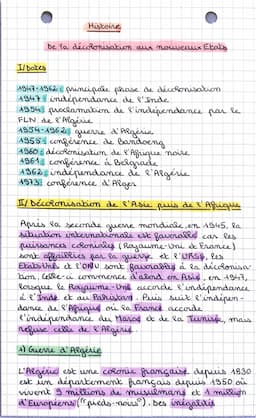 Histoire
De la décolonisation aux nouveaux Etats
I/Dates
1947-1962 : principale phase de décolonisation
1947 : indépendance de l'Inde
1954 : proclamation de l'indépendance par le
FLN de l'Algérie
1954-1962 : guerre d'Algérie
1955 : conférence de Bandoeng
1960 : décolonisation de l'Afrique noire
1961 : conférence à Belgrade
1962 : indépendance de l'Algérie
1973 : conférence d'Alger
II/ Décolonisation de l'Asie puis de l'Afrique
Après la seconde guerre mondiale, en 1945, la
situation internationale est favorable car les
puissances coloniales (Royaume-Uni et France)
sont affaiblies par la guerre et l'URSS, les
Etats-Unis et l'ONU sont favorables à la décolonisa-
tion. Celle-ci commence d'abord en Asie, en 1947,
lorsque le Royaume-Uni accorde l'indépendance
à l'Inde et au Pakistan. Puis suit l'indépen-
dance de l'Afrique où la France accorde
l'indépendance du Maroc et de la Tunisie, mais
refuse celle de l'Algérie.
1) Guerre d'Algérie
L'Algérie est une colonie française depuis 1830
et est un département français depuis 1950 où
vivent 9 millions de musulmans et 1 million
d'Européens ("pieds-noirs"). Des inégalités